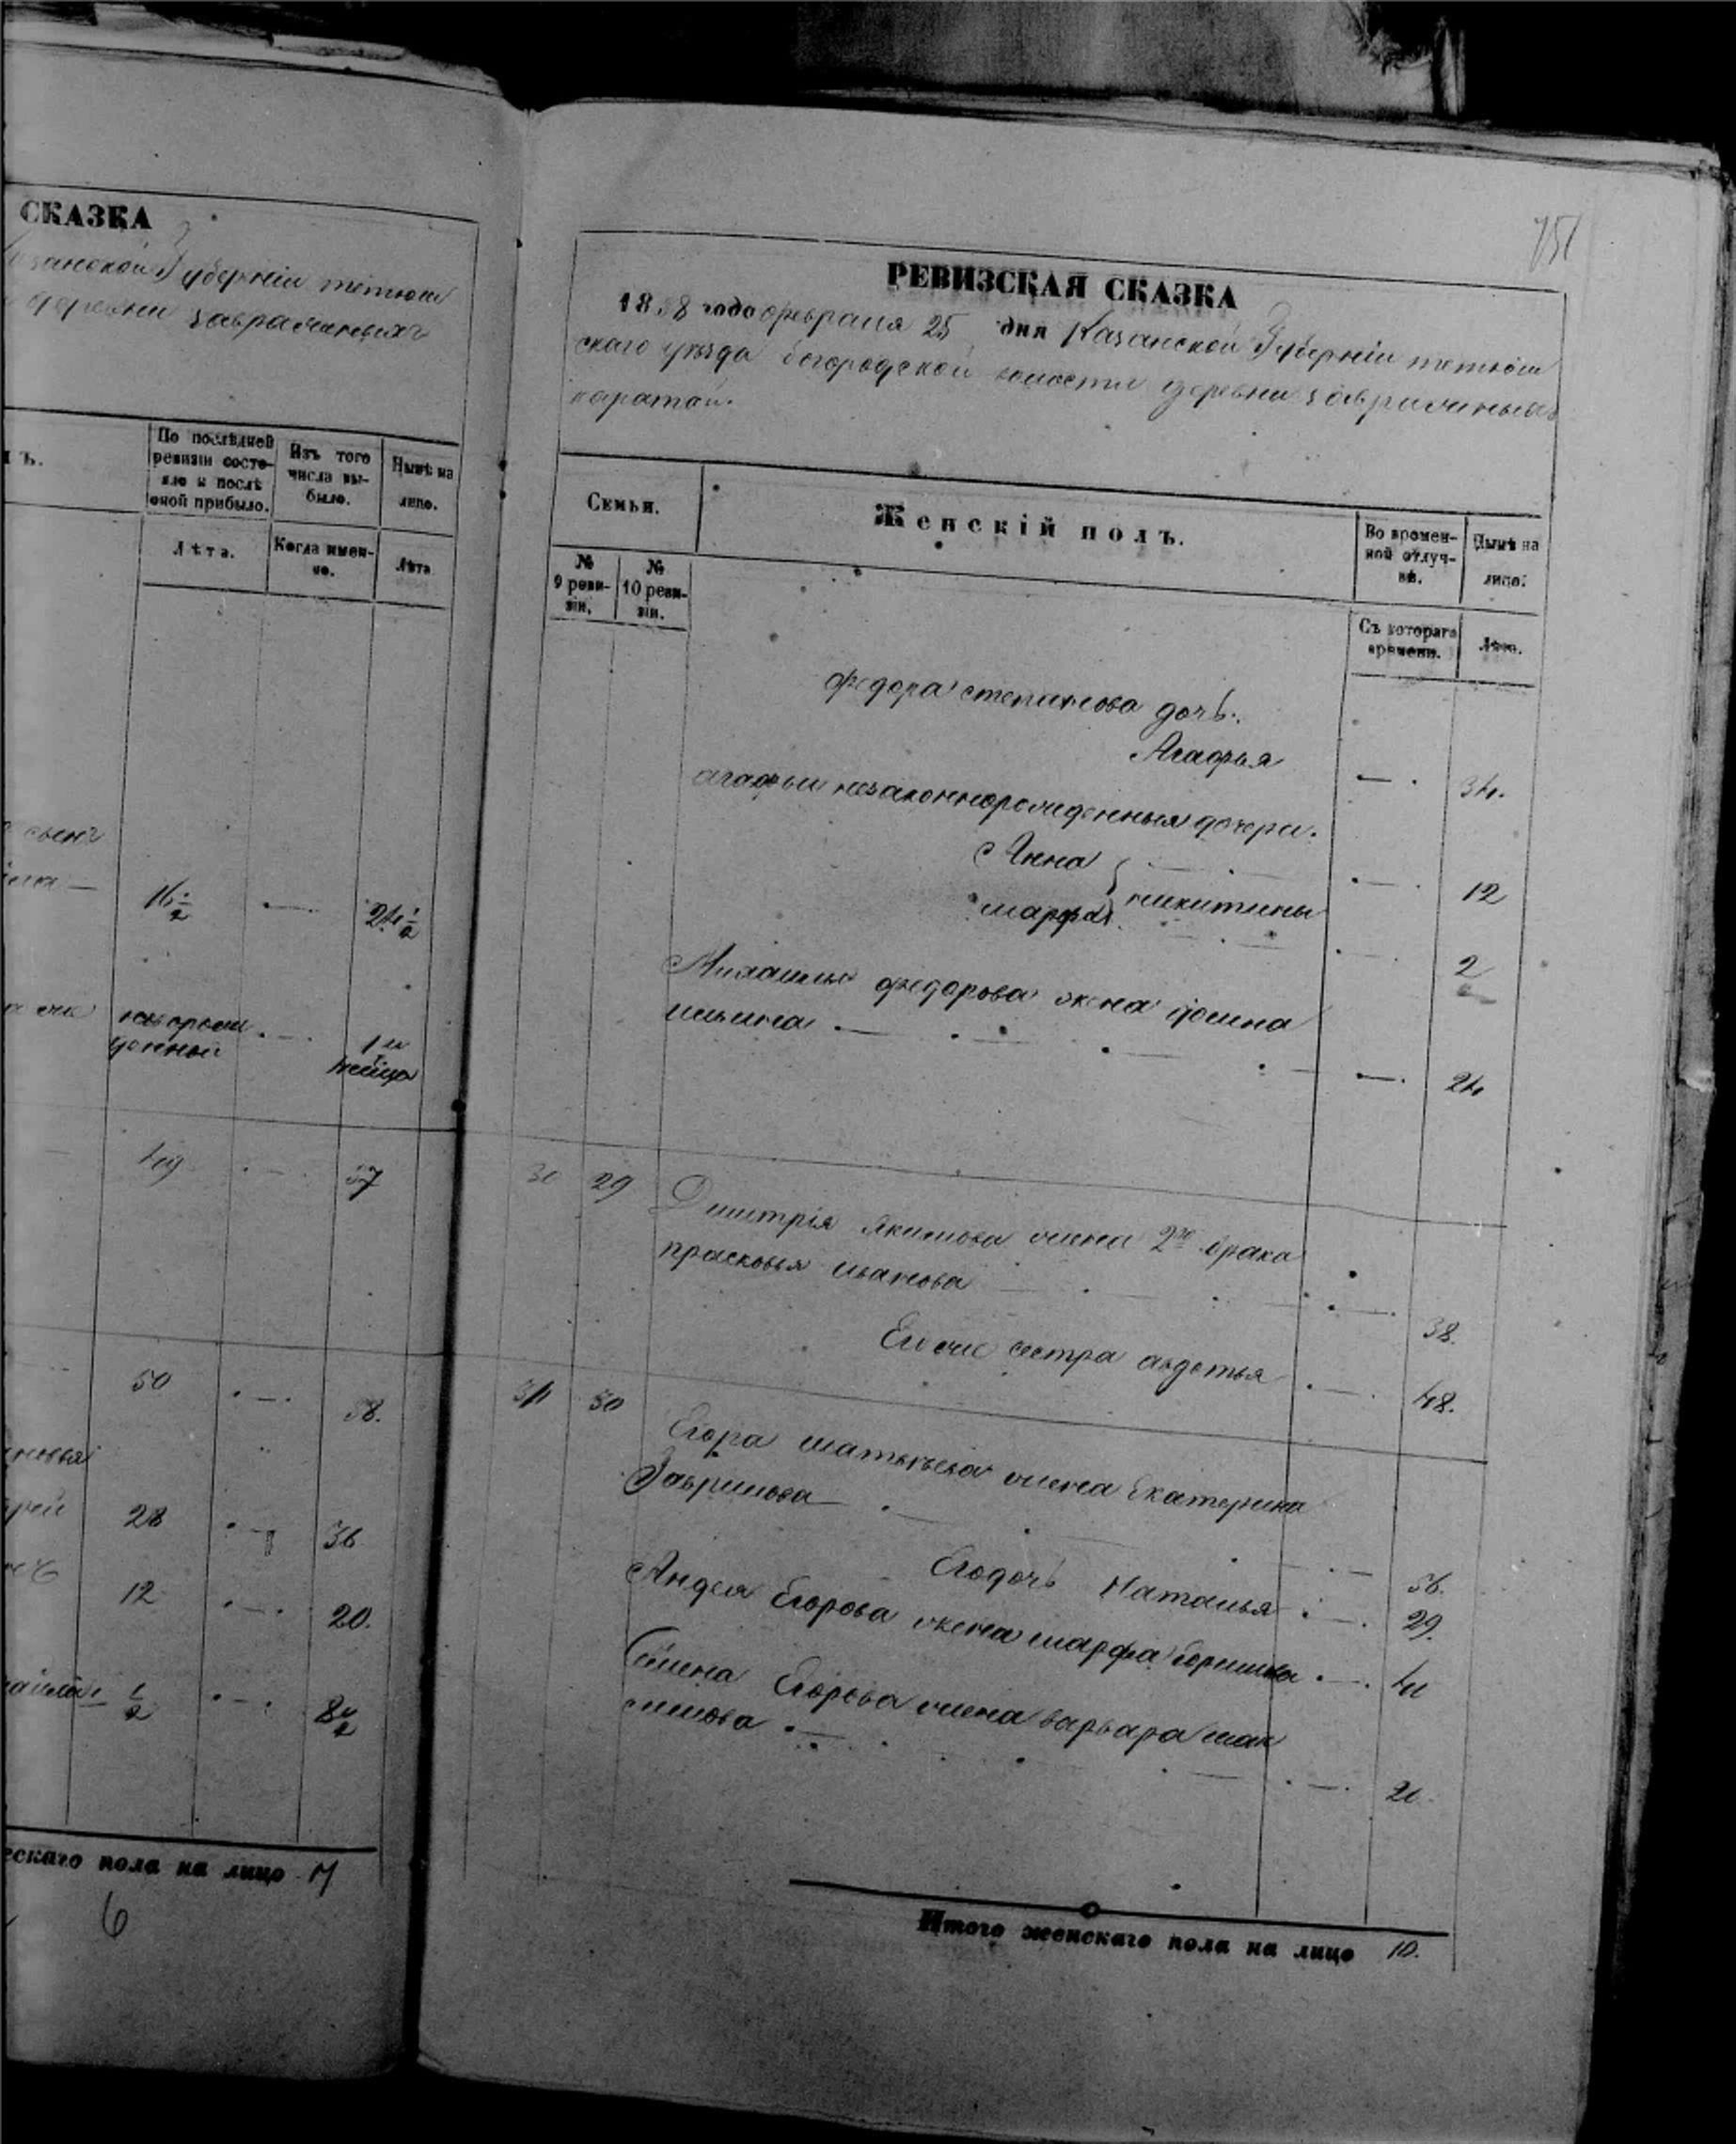 СКАЗКА
Губерніи тетюш
деревни
ъ.
По послѣдней ревизіи состо-яло и послѣ оной прибыло.
Изъ того числа вы-было.
Нынѣ на лицо.
Лѣта.
Когда имен-но.
Лѣта
сынъ
16 1/2 24 1/2
новорож
денный
1 м
49 57
50 58.
28 36
12 20.
1/2 8 1/2
ескаго пола на лицо 7
6
751
РЕВИЗСКАЯ СКАЗКА
1858 года февраля 25 дня Казанской Губерніи тетюш
скаго уѣзда богородской волости деревни
каратай.
Семьи.
Женскій полъ.
Во времен-ной отлуч-кѣ.
Нынѣ на лицо.
№ 9 реви-зіи.
№ 10 реви-зіи.
Съ котораго времени.
Лѣта.
федора степанова дочь.
Агафья 34.
агафьи незаконнорожденныя дочери.
Анна 12
марфа никитины 2
Михайлы федорова жена
ильина 24
30 29 Дмитрія Якимова жена 2го брака
прасковья иванова 38.
Его же сестра авдотья 48.
31 30 Егора матвѣева жена Екатерина
Гаврилова 56.
Его дочь Наталья 29.
Егорова жена марфа 41
Семена Егорова жена варвара мак
симова
Итого женскаго пола на лицо 10.